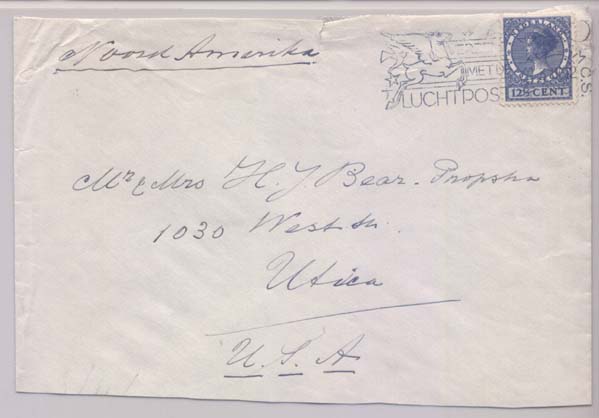 Noord Amerika
MET
LUCHTPOS
12½ CENT
Mr & Mrs H. J. Bear - Propsha
1030 West St.
Utica
U. S. A